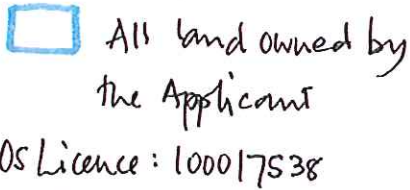 All land owned by
the Applicant
OS Licence: 100017538